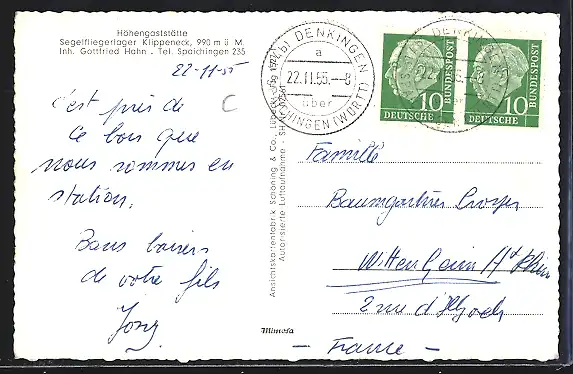 Höhengaststätte
Segelfliegerlager Klippeneck, 990 m ü M.
Inh. Gottfried Hahn - Tel. Spaichingen 235
22-11-55
c'est près de
ce bois que
nous sommes en
station.
Bons baisers
de votre fils
Ansichtskartenfabrik Schöning & Co., Lübeck
Autorisierte Luftaufnahme
Mimosa
DENKINGEN
a
22.11.55.-8
über
SPAICHINGEN (WÜRTT)
10
DEUTSCHE
BUNDESPOST
10
DEUTSCHE
BUNDESPOST
Famille
Baumgartner
Wittenheim Ht Rhin
2 rue d'
- France -